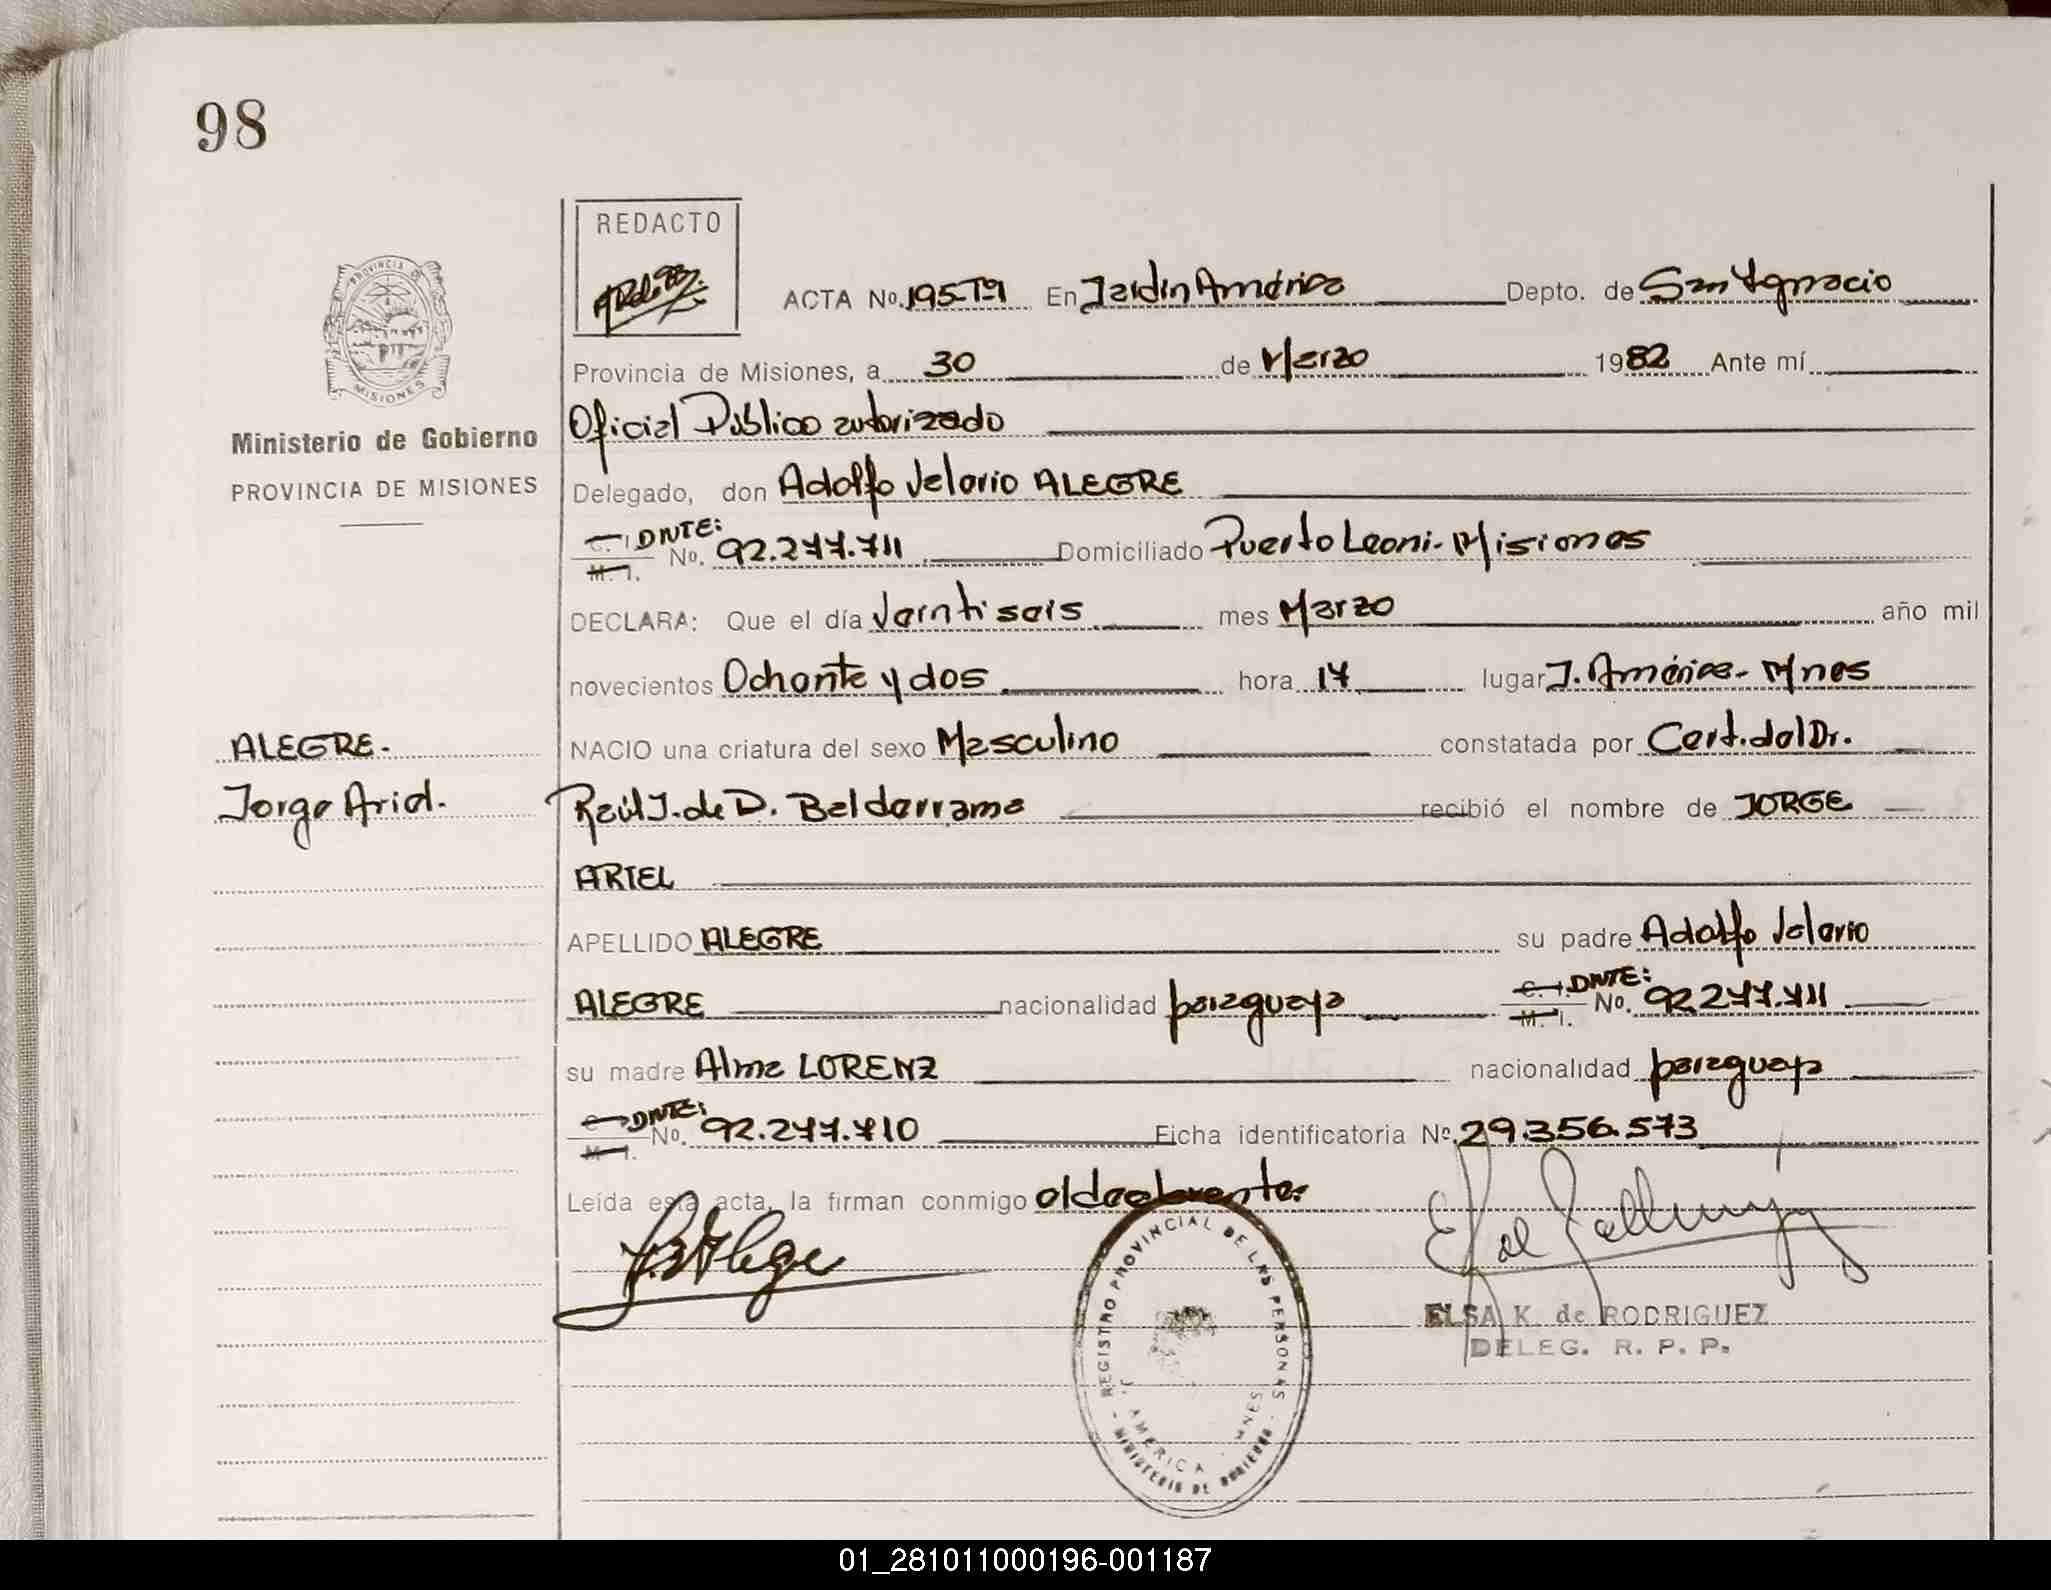 98
REDACTO
ACTA No. 195-Tº1 En Jardín América Depto. de San Ignacio
Provincia de Misiones, a 30 de Marzo 1982 Ante mí
Oficial Público autorizado
Ministerio de Gobierno
PROVINCIA DE MISIONES
Delegado, don Adolfo Velario ALEGRE
C. I. DNTE:
M. I. No. 92.277.711 Domiciliado Puerto Leoni - Misiones
DECLARA: Que el día Veintiseis mes Marzo año mil
novecientos Ochenta y dos hora 17 lugar J. América - Mnes
ALEGRE.-
NACIO una criatura del sexo Masculino constatada por Cert. del Dr.
Jorge Ariel.
Raúl J. de D. Balderrama recibió el nombre de JORGE
ARIEL
APELLIDO ALEGRE su padre Adolfo Velario
ALEGRE nacionalidad paraguaya C. I. DNTE: M. I. No. 92.277.711
su madre Alma LORENZ nacionalidad paraguaya
C. I. DNTE:
M. I. No. 92.277.710 Ficha identificatoria Nº 29.356.573
Leída esta acta, la firman conmigo el declarante.
ELSA K. de RODRIGUEZ
DELEG. R. P. P.
REGISTRO PROVINCIAL DE LAS PERSONAS
J. AMERICA - MNES
- MINISTERIO DE GOBIERNO -
PROVINCIA DE
MISIONES
01_281011000196-001187